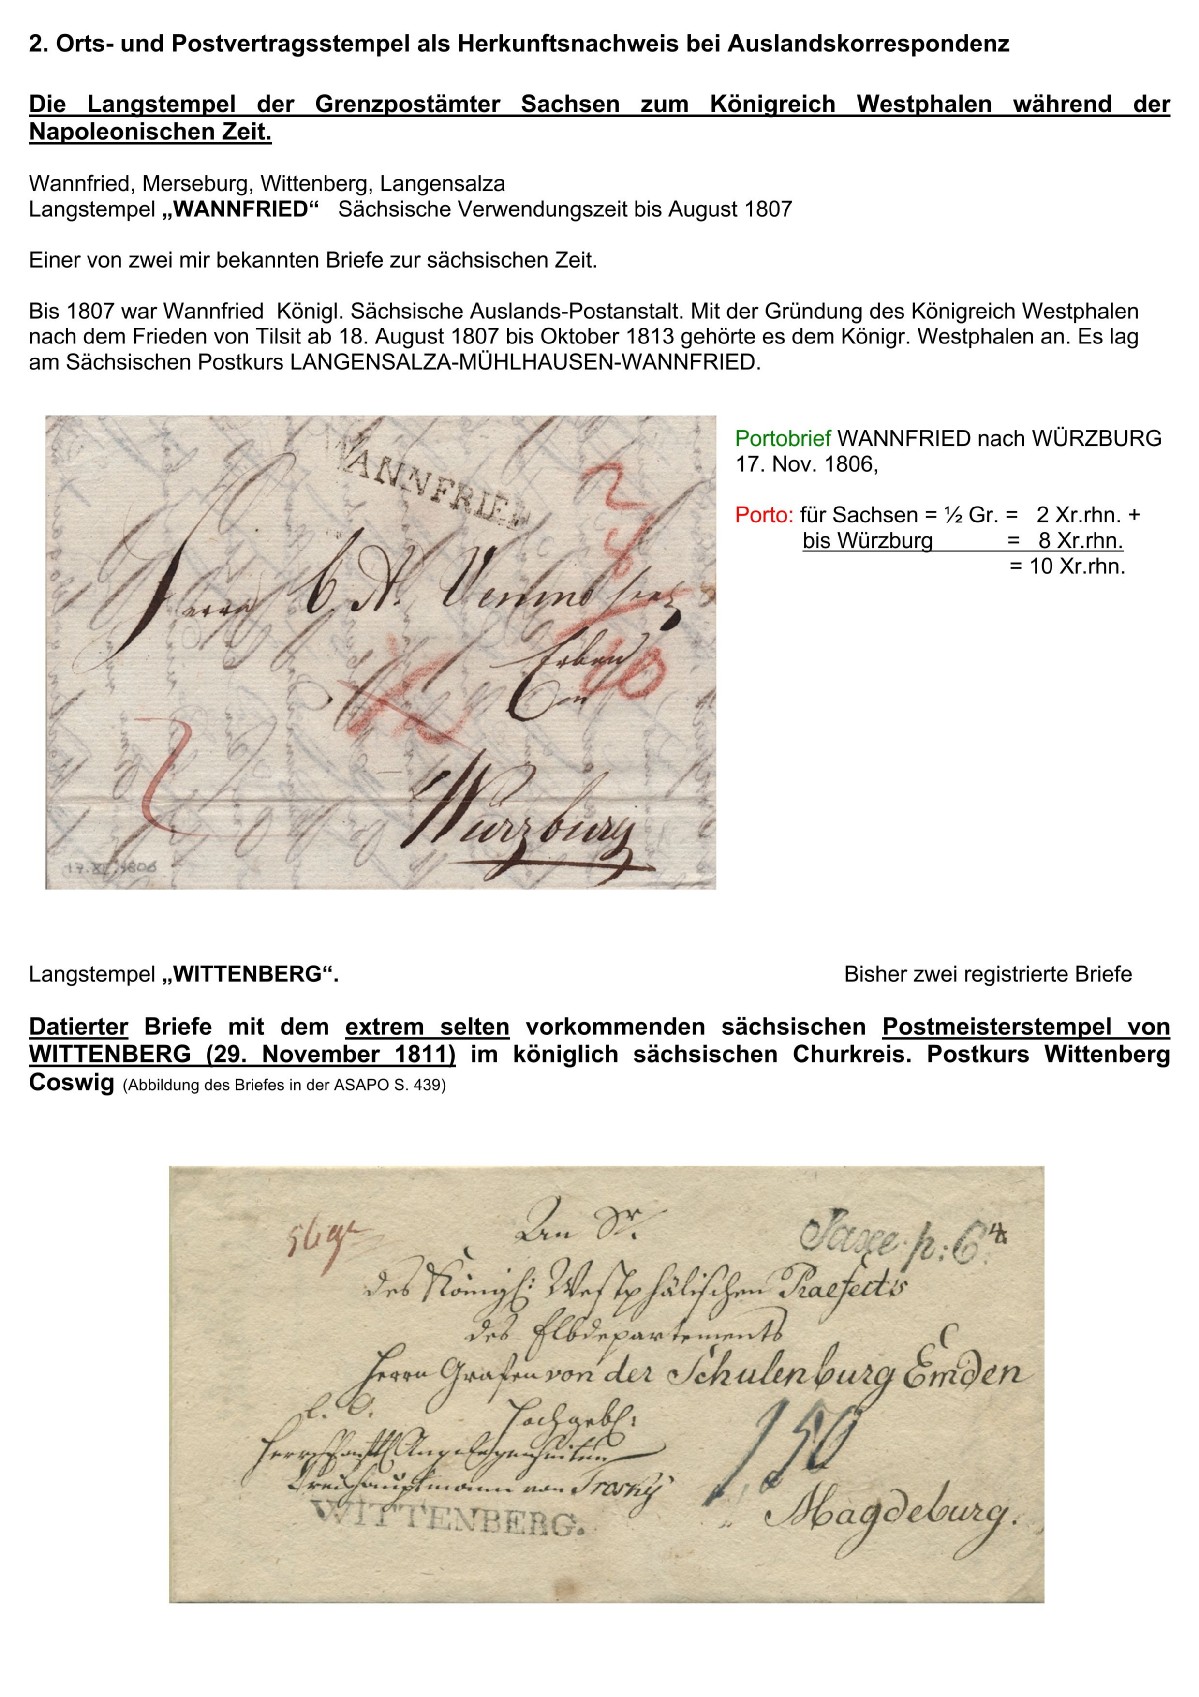 2. Orts- und Postvertragsstempel als Herkunftsnachweis bei Auslandskorrespondenz
Die Langstempel der Grenzpostämter Sachsen zum Königreich Westphalen während der
Napoleonischen Zeit.
Wannfried, Merseburg, Wittenberg, Langensalza
Langstempel „WANNFRIED“ Sächsische Verwendungszeit bis August 1807
Einer von zwei mir bekannten Briefe zur sächsischen Zeit.
Bis 1807 war Wannfried Königl. Sächsische Auslands-Postanstalt. Mit der Gründung des Königreich Westphalen
nach dem Frieden von Tilsit ab 18. August 1807 bis Oktober 1813 gehörte es dem Königr. Westphalen an. Es lag
am Sächsischen Postkurs LANGENSALZA-MÜHLHAUSEN-WANNFRIED.
WANNFRIED
2
8
10
Herrn C. A. Venino
Erben
in
Würzburg
17.XI.1806
Portobrief WANNFRIED nach WÜRZBURG
17. Nov. 1806,
Porto: für Sachsen = ½ Gr. = 2 Xr.rhn. +
bis Würzburg = 8 Xr.rhn.
= 10 Xr.rhn.
Langstempel „WITTENBERG“.
Bisher zwei registrierte Briefe
Datierter Briefe mit dem extrem selten vorkommenden sächsischen Postmeisterstempel von
WITTENBERG (29. November 1811) im königlich sächsischen Churkreis. Postkurs Wittenberg
Coswig (Abbildung des Briefes in der ASAPO S. 439)
An Sr.
des Königl: Westphälischen Praefects
des Elbdepartements
Herrn Grafen von der Schulenburg Emden
Hochgebl:
Herrschaftl Angelegenheiten
Kreishauptmann von Trosky
WITTENBERG.
150
Magdeburg.